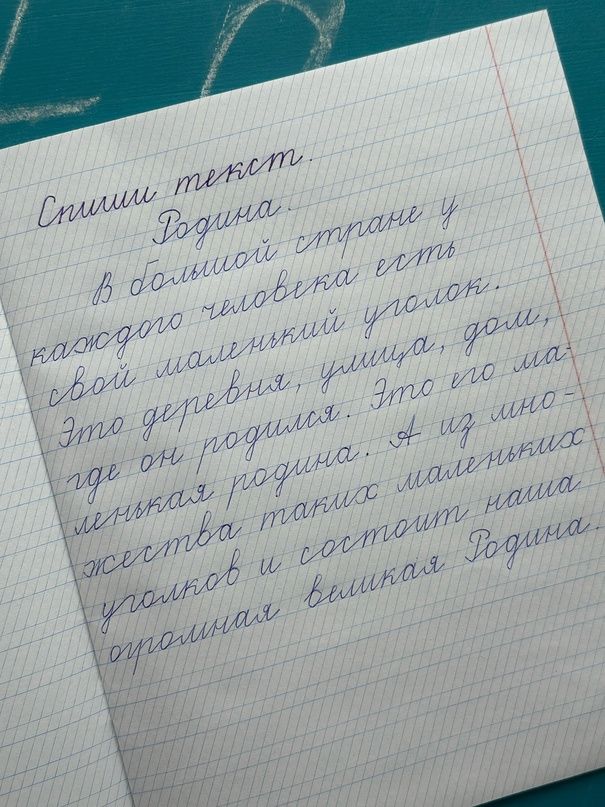 Спиши текст.
Родина.
В большой стране у
каждого человека есть
свой маленький уголок.
Это деревня, улица, дом,
где он родился. Это его ма-
ленькая родина. А из мно-
жества таких маленьких
уголков и состоит наша
огромная великая Родина.